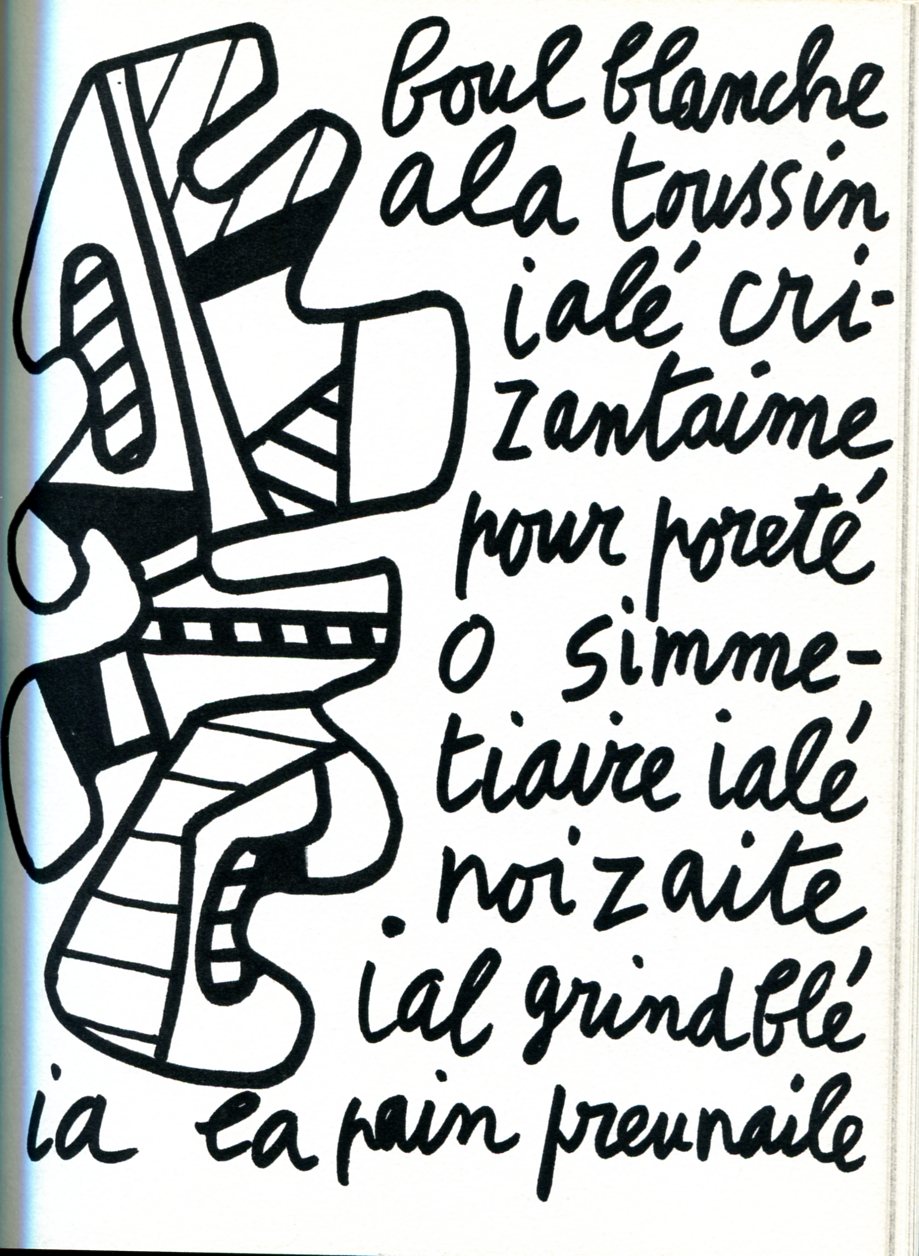 boul blanche
ala toussin
ialé cri-
zantaime
pour poreté
o simme-
tiaire ialé
noizaite
ial grindblé
ia ea pain preunaile